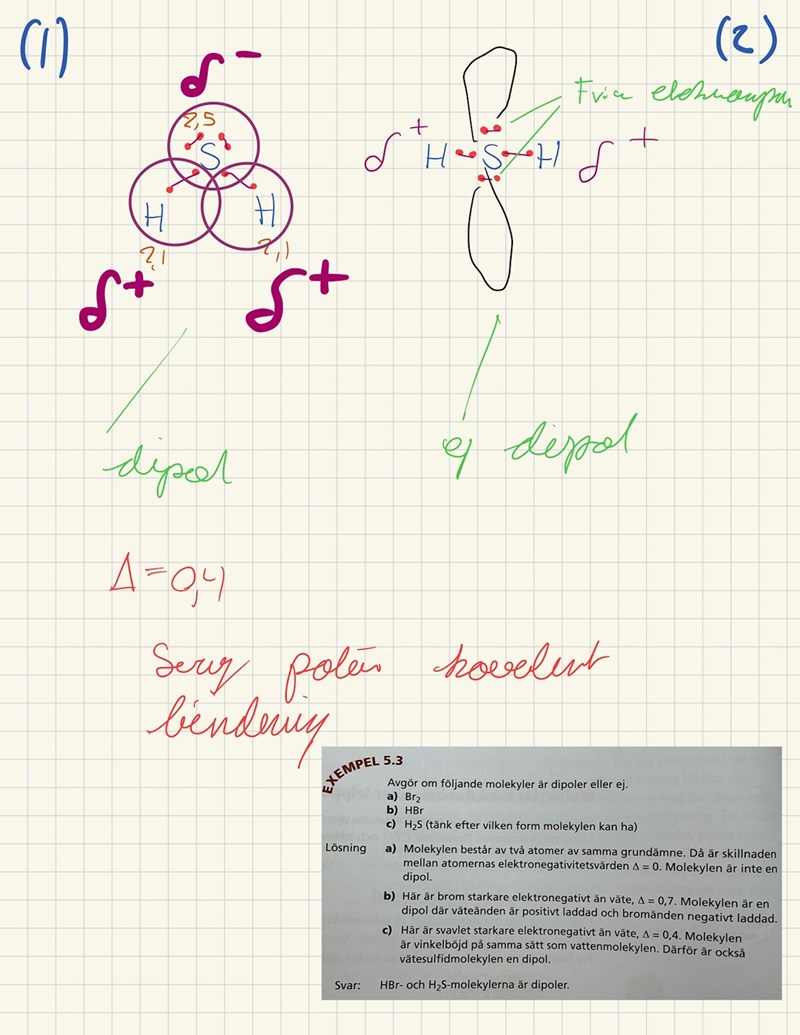 (1)
(2)
δ-
2,5
S
H H
2,1 2,1
δ+ δ+
Fria
δ+ H S H δ+
dipol
ej dipol
Δ=0,4
Svag polär kovalent
bindning
EXEMPEL 5.3
Avgör om följande molekyler är dipoler eller ej.
a) Br₂
b) HBr
c) H₂S (tänk efter vilken form molekylen kan ha)
Lösning a) Molekylen består av två atomer av samma grundämne. Då är skillnaden
mellan atomernas elektronegativitetsvärden Δ = 0. Molekylen är inte en
dipol.
b) Här är brom starkare elektronegativt än väte, Δ = 0,7. Molekylen är en
dipol där väteänden är positivt laddad och bromänden negativt laddad.
c) Här är svavlet starkare elektronegativt än väte, Δ = 0,4. Molekylen
är vinkelböjd på samma sätt som vattenmolekylen. Därför är också
vätesulfidmolekylen en dipol.
Svar: HBr- och H₂S-molekylerna är dipoler.